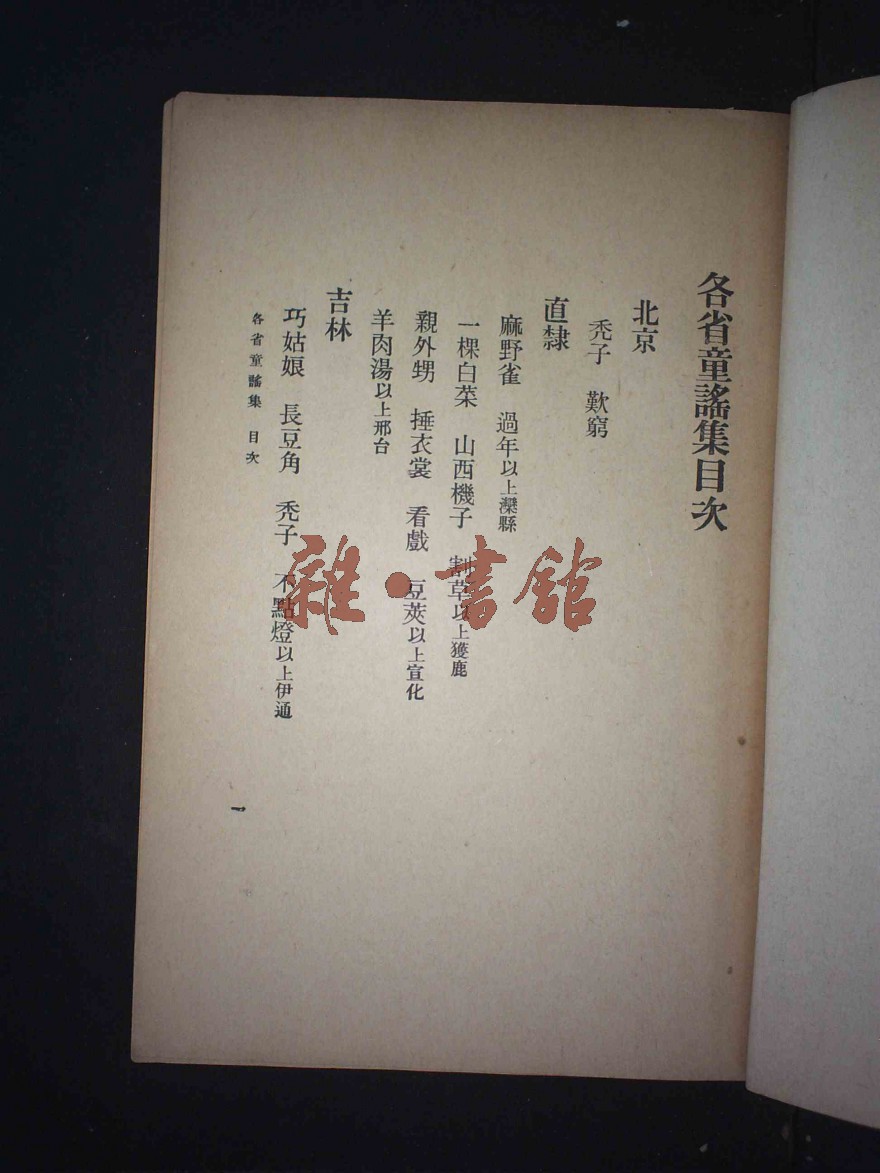 各省童謠集目次
北京
禿子　歎窮
直隸
麻野雀　過年以上灤縣
一棵白菜　山西機子　割草以上獲鹿
親外甥　捶衣裳　看戲　豆莢以上宣化
羊肉湯以上邢台
吉林
巧姑娘　長豆角　禿子　不點燈以上伊通
各省童謠集　目次
一
雜·書館